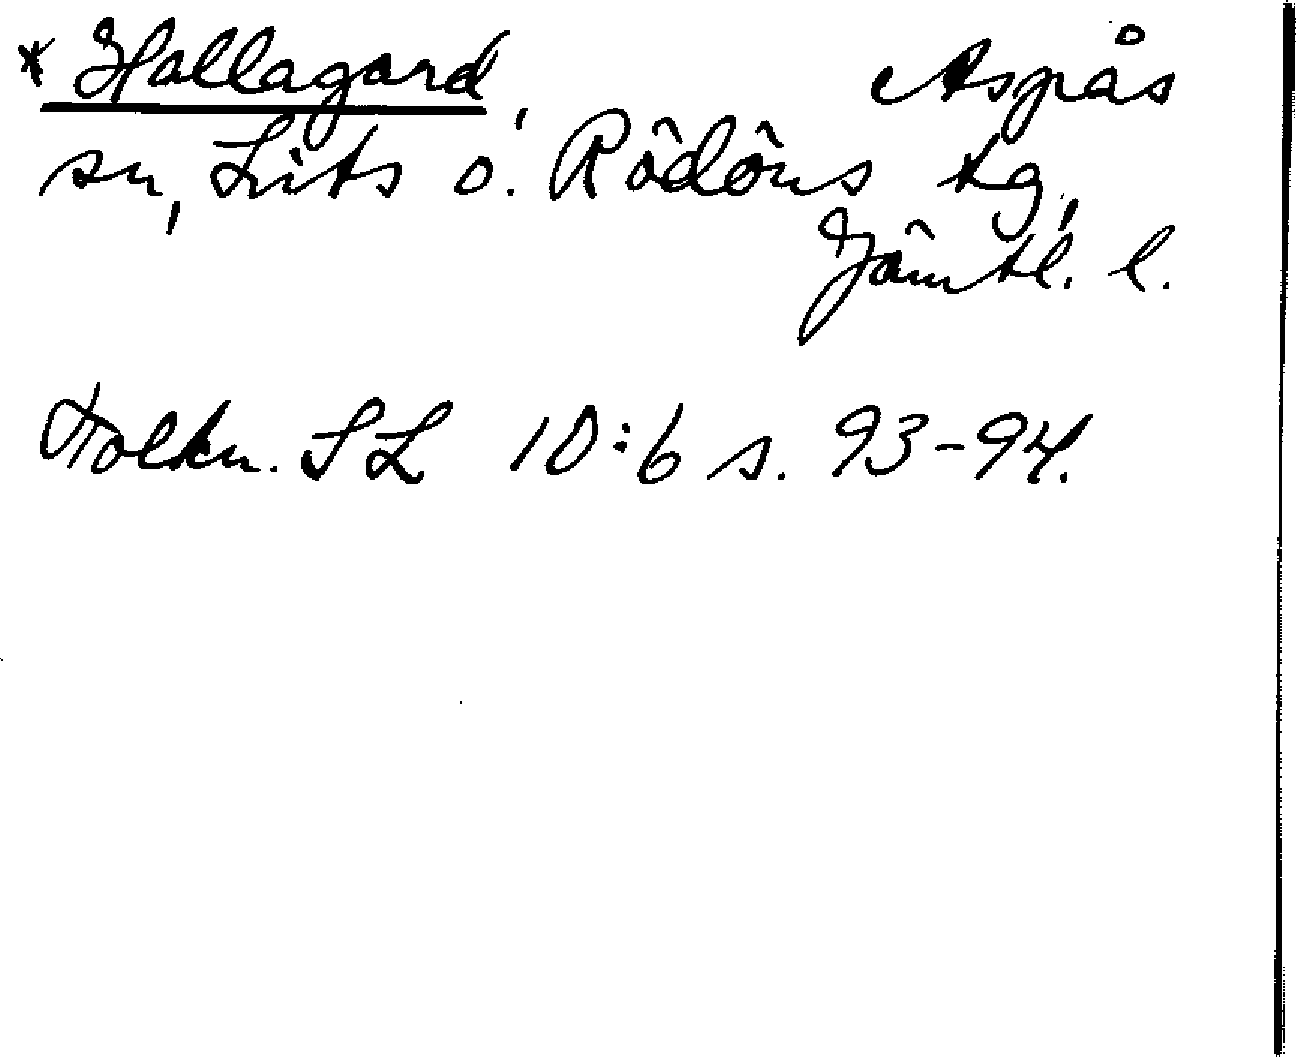 * Hallagard Aspås
sn, Lits o. Rödöns tg,
Jämtl. l.
Tolkn. SL 10:6 s. 93-94.